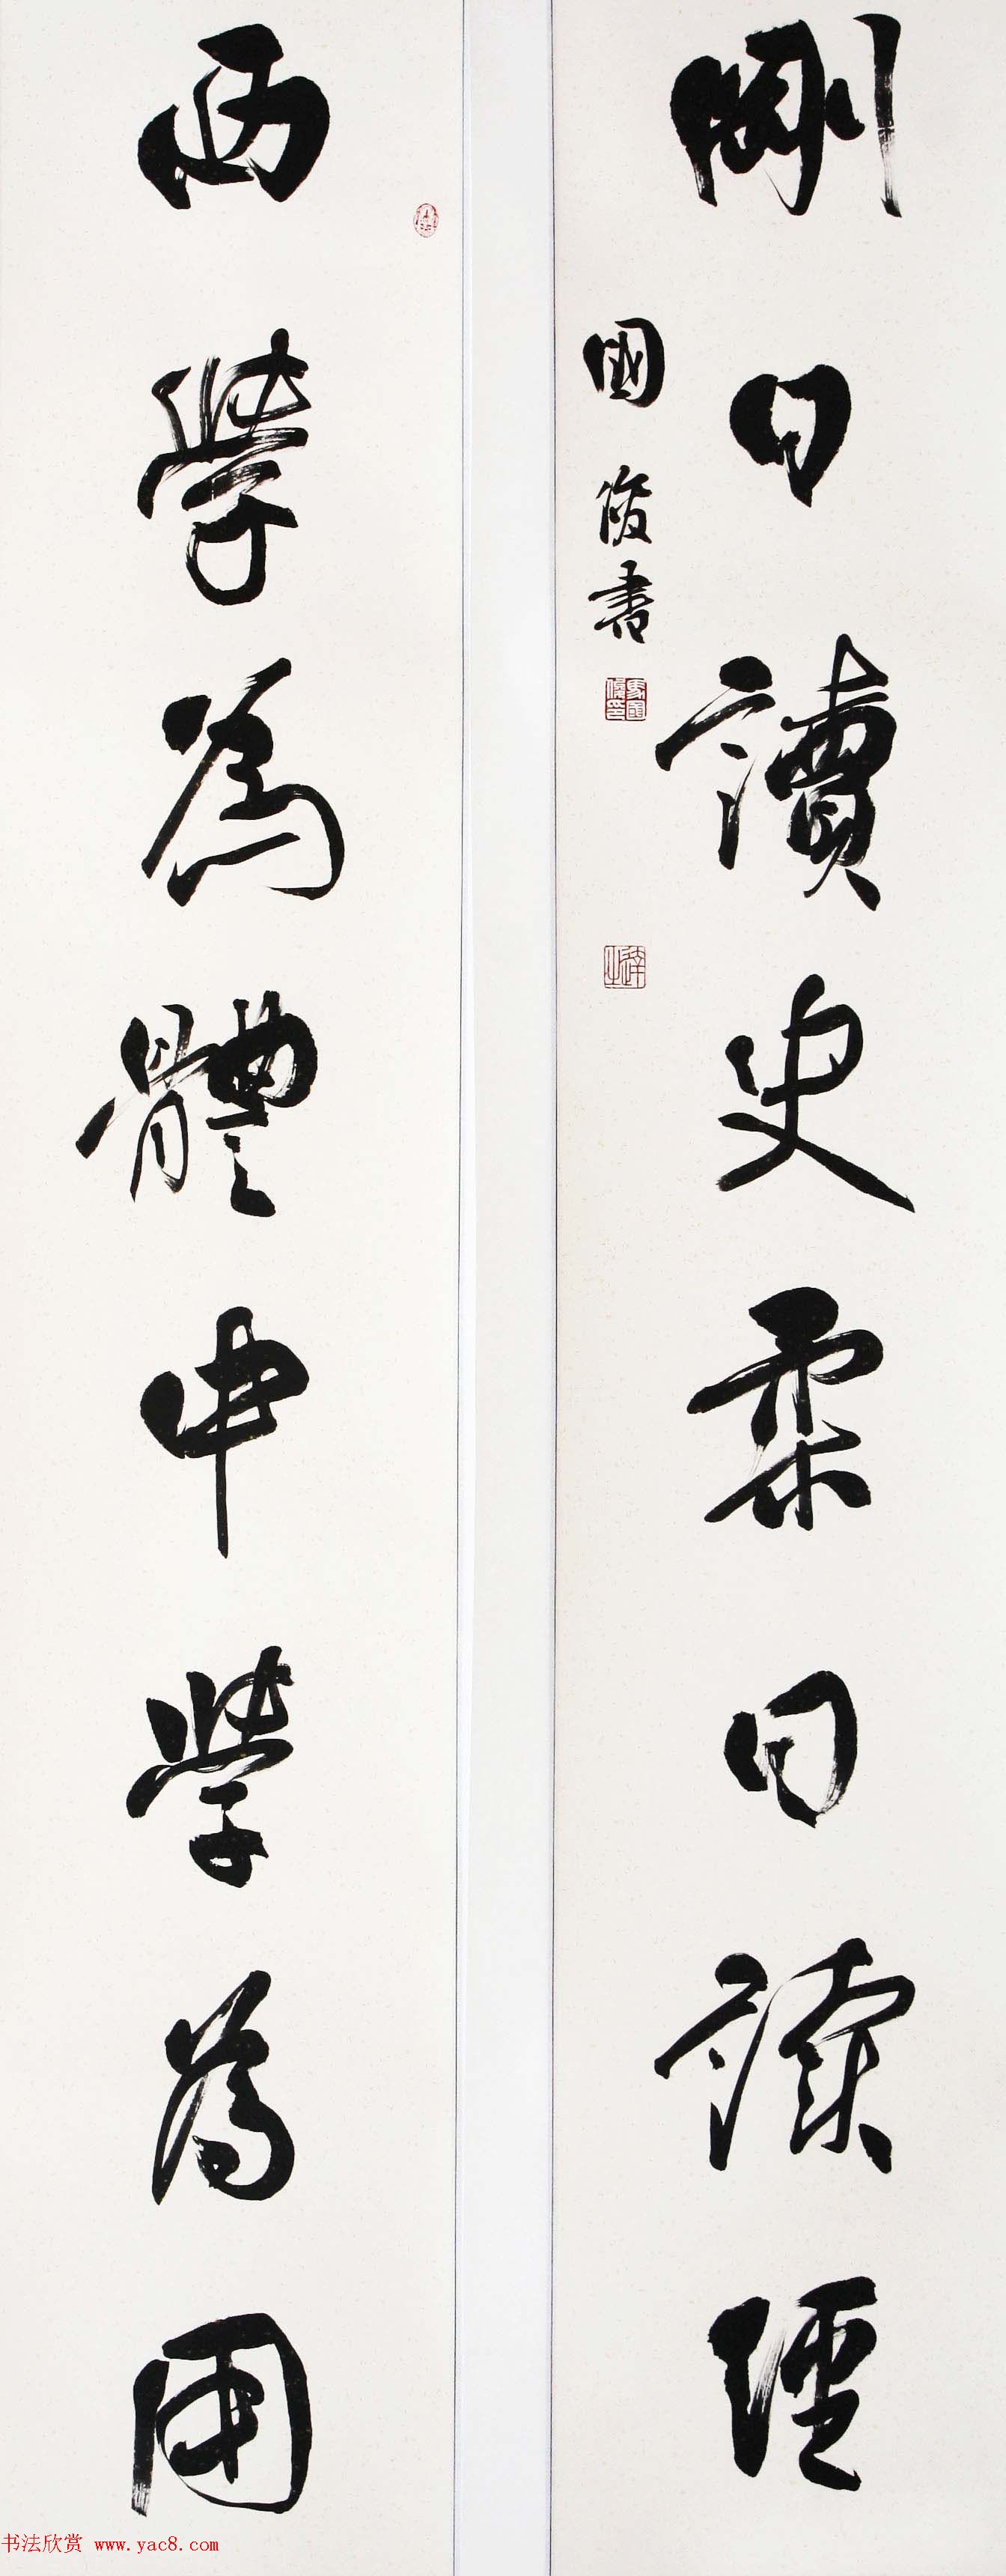 剛日讀史柔日讀經
國俊書
西學為體中學為用
书法欣赏 www.yac8.com